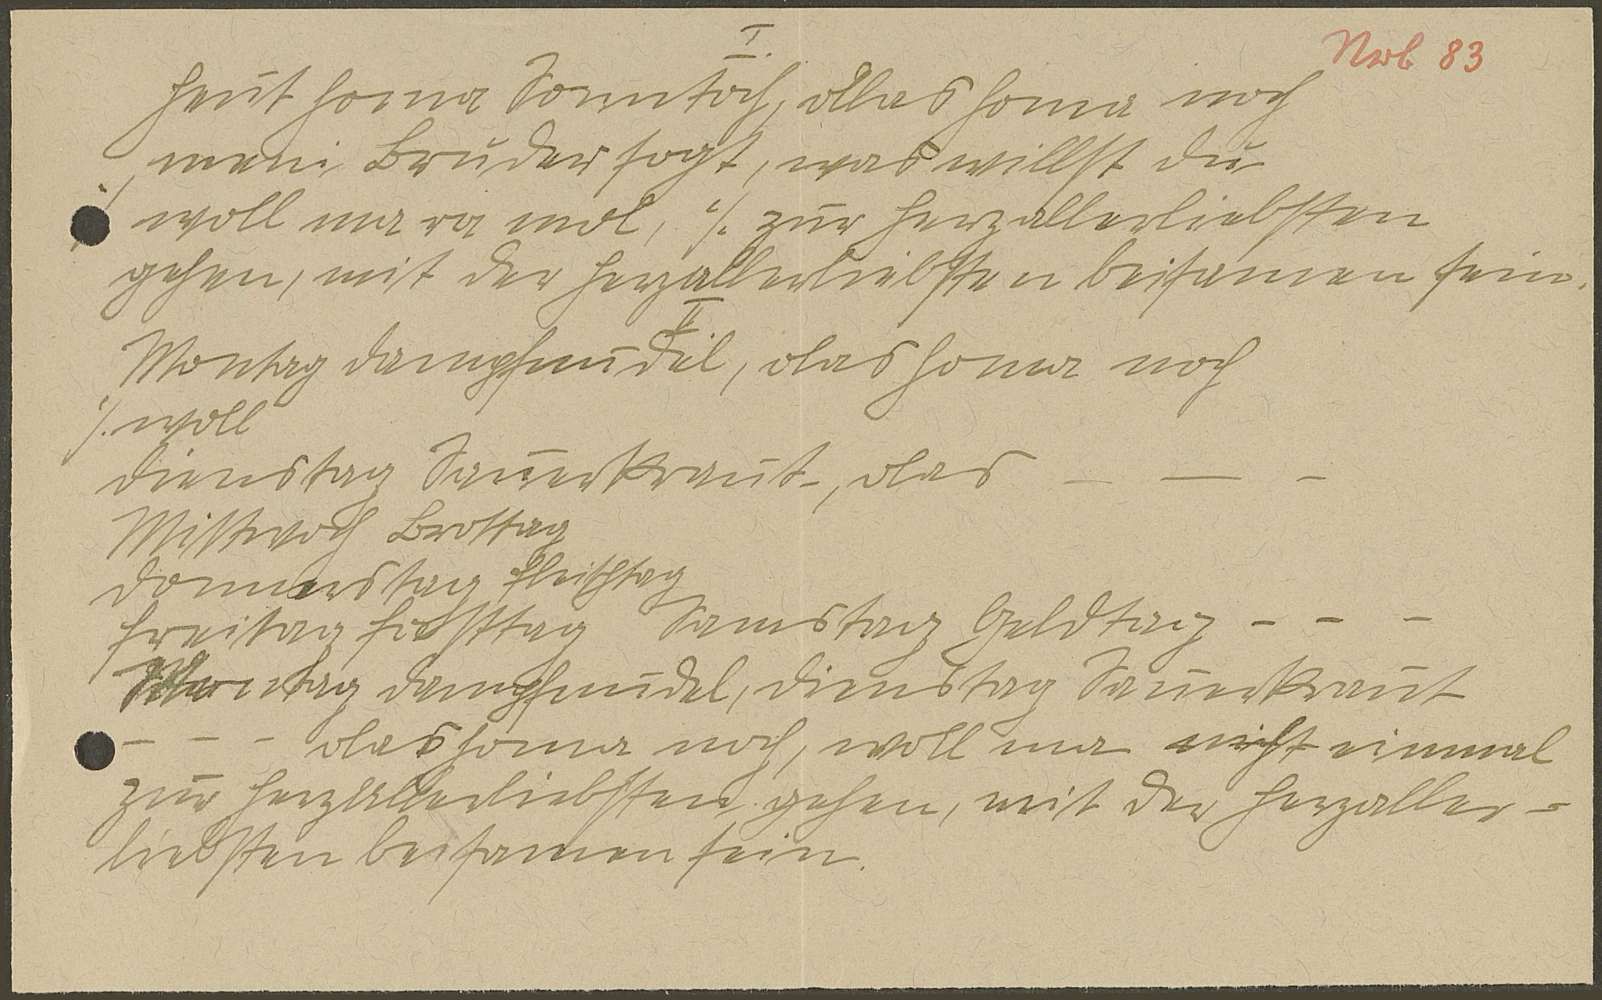 I.
Nrb 83
heut homa Sonntoch, dllas homa noch
meni Bruder sogt, was willst du
·/. woll ma ra mol, ·/. zur herzallerliebsten
gehen, mit der herzallerliebsten beisamen sein.
II
Montag dampfnudel, dlas homa noch
·/. woll
dienstag Sauerkraut, dlas — — –
Mittwoch Brottag
donnerstag fleischtag
freitag fosttag Samstag Geldtag – – –
Montag dampfnudel, dienstag Sauerkraut
– – – dlas homa noch, woll ma nicht einmal
zur herzallerliebsten gehen, mit der herzaller-
liebsten beisamen sein.